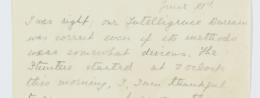 June 11th
I was right, our Intelligence Bureau
was correct even if its methods
were somewhat devious. The
started at 7 o'clock
this morning, I, I am thankful